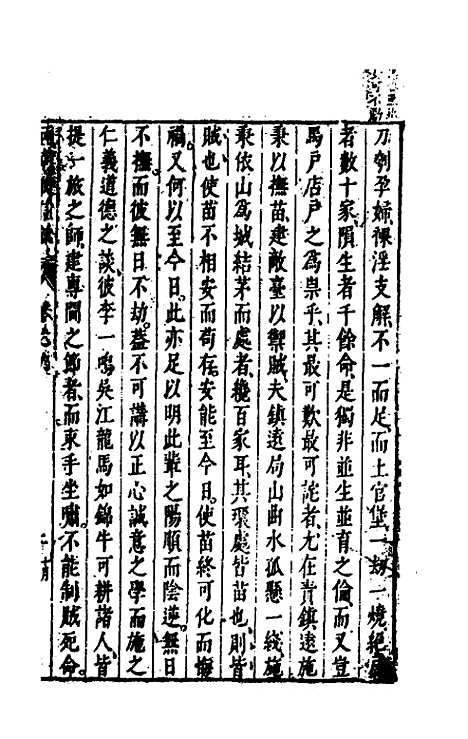 刀刳孕婦裸淫支解不一而足而土官堡一刼一燒絕
者數十家隕生者千餘命是獨非並生並育之倫而又豈
馬戶店戶之爲祟乎其最可歎最可詫者尤在貴鎮遠施
秉以撫苗建敵臺以禦賊夫鎮遠局山曲水孤懸一綫施
秉依山爲城結茅而處者纔百家耳其環處皆苗也則皆
賊也使苗不相安而苟存安能至今日使苗終可化而悔
禍又何以至今日此亦足以明此輩之陽順而陰逆無日
不撫而彼無日不劫蓋不可講以正心誠意之學而施之
仁義道德之談彼李一鳴吳江龍馬如錦牛可耕諸人皆
提一旅之師建專閫之節者而束手坐嘯不能制賊死命